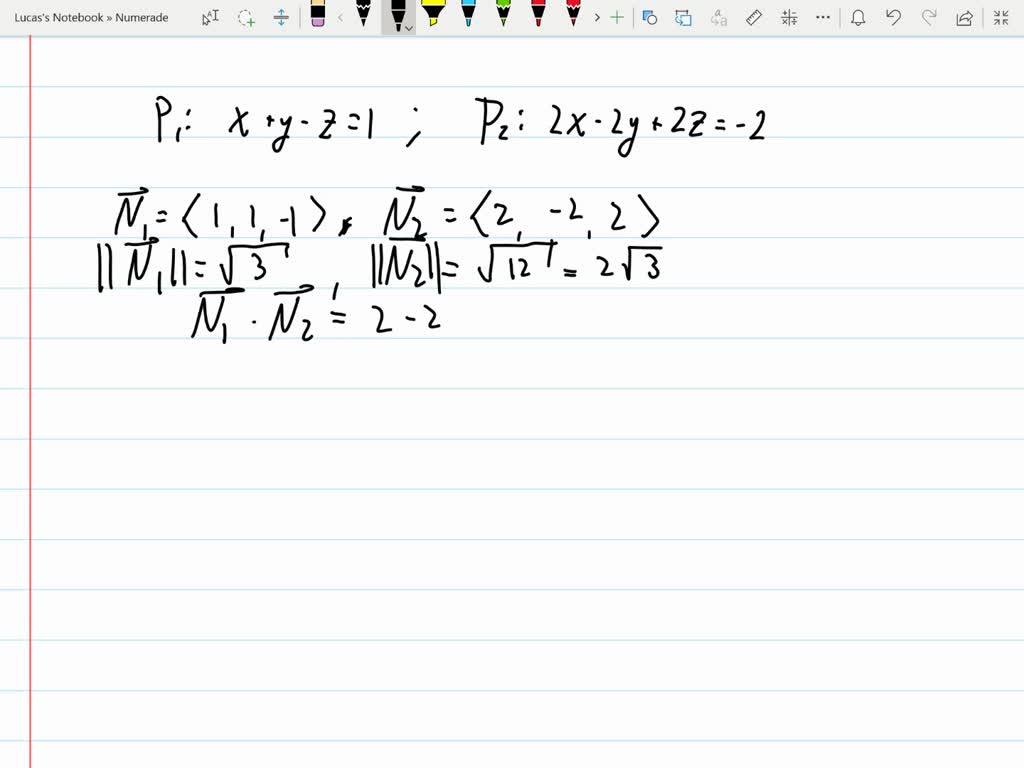 Lucas's Notebook » Numerade
P₁: x+y-z=1 ; P₂: 2x-2y+2z=-2
N⃗₁ = ⟨1, 1, -1⟩, N⃗₂ = ⟨2, -2, 2⟩
||N⃗₁|| = √3 ||N⃗₂|| = √12 = 2√3
N⃗₁ · N⃗₂ = 2-2